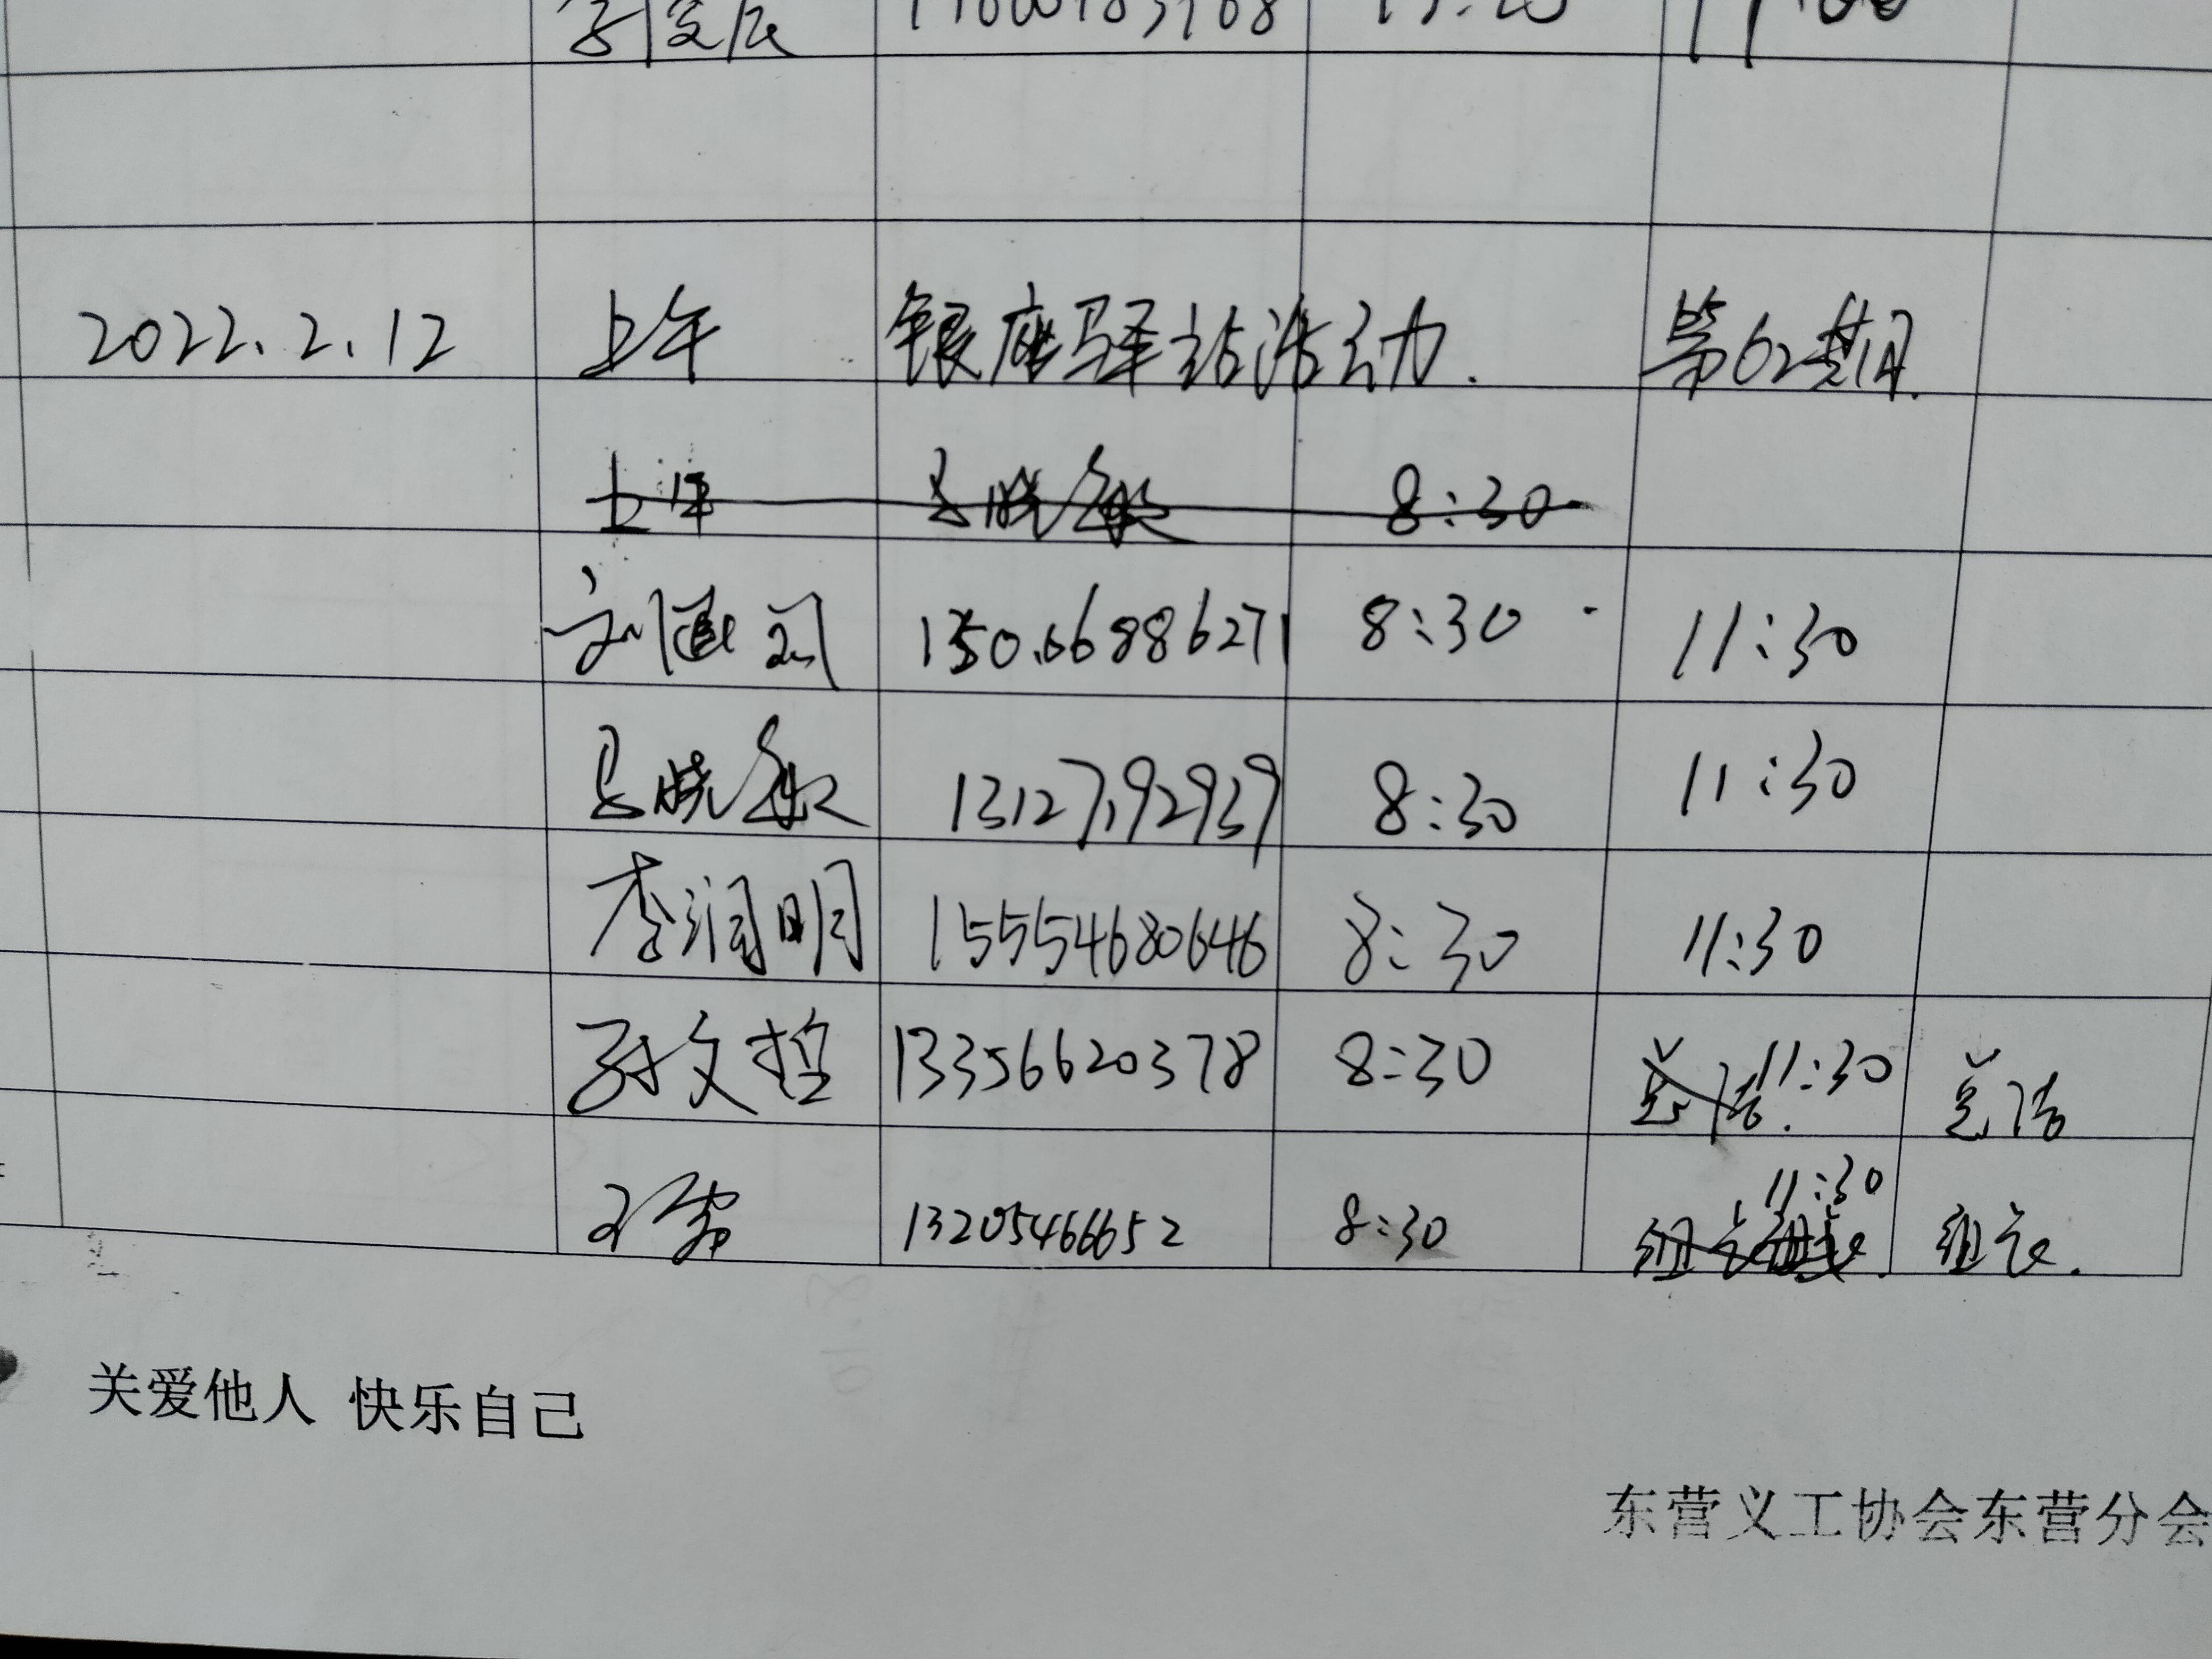 2022.2.12 上午 银座驿站活动. 第62期.
上午 马晓敏 8:30
15066886271 8:30 11:30
马晓敏 13127192939 8:30 11:30
李润明 15554680646 8:30 11:30
孙文哲 13356620378 8:30 11:30 党洁
13205466652 8:30 11:30 组长.
关爱他人 快乐自己
东营义工协会东营分会